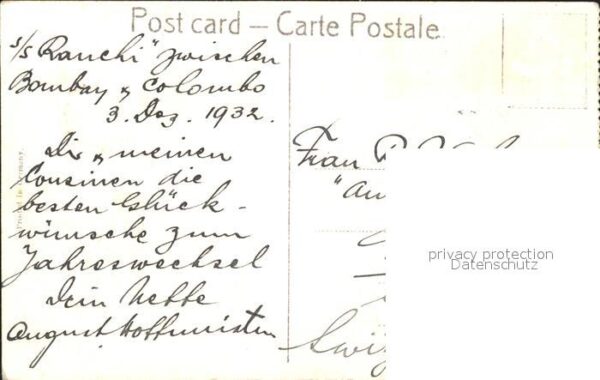 Post card – Carte Postale
s/s Ranchi" zwischen
Bombay & Colombo
3. Dez. 1932.
Dir & meinen
Cousinen die
besten Glück-
wünsche zum
Jahreswechsel
Dein Neffe
August Hoffmeister
Frau
"Au
privacy protection
Datenschutz